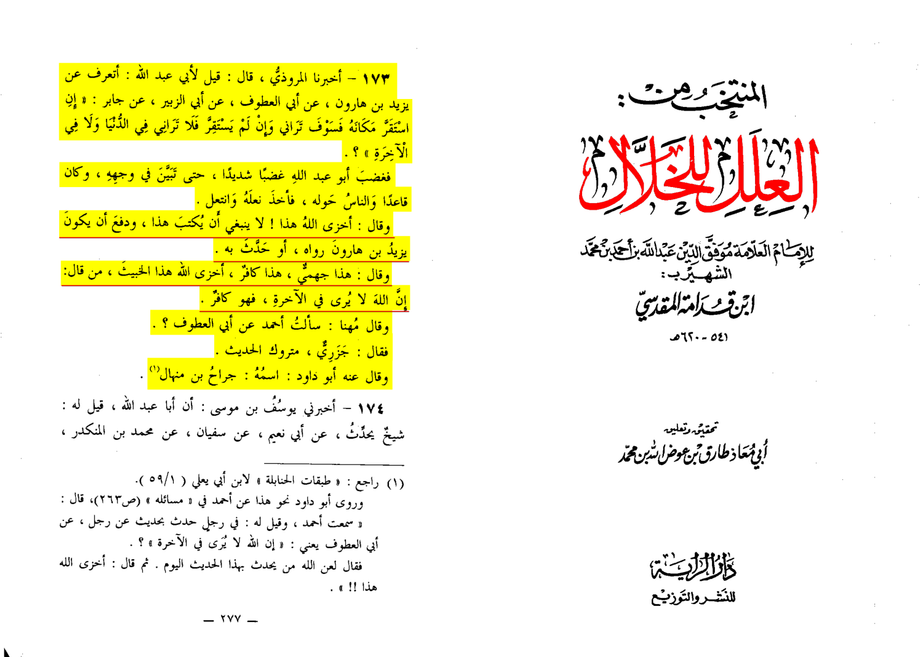 المنتخب من :
العلل للخلال
للإمام العلامة موفق الدين عبد الله بن أحمد بن محمد
الشهير ب :
ابن قدامة المقدسي
٥٤١ - ٦٢٠ هـ
تحقيق وتعليق
أبي معاذ طارق بن عوض الله بن محمد
دار الراية
للنشر والتوزيع
١٧٣ - أخبرنا المروذيُّ ، قال : قيل لأبي عبد الله : أتعرف عن
يزيد بن هارون ، عن أبي العطوف ، عن أبي الزبير ، عن جابر : « إِنِ
اسْتَقَرَّ مَكَانَهُ فَسَوْفَ تَرَاني وَإِنْ لَمْ يَسْتَقِرَّ فَلَا تَرَانِي فِي الدُّنْيَا وَلَا فِي
الْآخِرَةِ » ؟ .
فغضبَ أبو عبد اللهِ غضبًا شديدًا ، حتى تَبَيَّنَ في وجههِ ، وكان
قاعدًا وَالناسُ حَوله ، فأخذَ نعلَهُ وَانتعل .
وقال : أخزى اللهُ هذا ! لا ينبغي أَن يُكتبَ هذا ، ودفعَ أن يكونَ
يزيدُ بن هارونَ رواه ، أو حَدَّثَ به .
وقال : هذا جهميٌّ ، هذا كافرٌ ، أخزى الله هذا الخبيثَ ، من قال:
إِنَّ اللهَ لا يُرى في الآخرةِ ، فهو كافرٌ .
وقال مُهنا : سألتُ أحمد عن أبي العطوف ؟ .
فقال : جَزَرِيٌّ ، متروك الحديث .
وقال عنه أبو داود : اسمُهُ : جراحُ بن منهال(١) .
١٧٤ - أخبرني يوسُفُ بن موسى : أن أبا عبد الله ، قيل له :
شيخٌ يحدِّثُ ، عن أبي نعيم ، عن سفيان ، عن محمد بن المنكدر ،
(١) راجع : « طبقات الحنابلة » لابن أبي يعلي ( ١/ ٥٩ ).
وروى أبو داود نحو هذا عن أحمد في « مسائله » (ص٢٦٣)، قال :
« سمعت أحمد ، وقيل له : في رجلٍ حدث بحديث عن رجل ، عن
أبي العطوف يعني : « إن الله لا يُرَى في الآخرة » ؟ .
فقال لعن الله من يحدث بهذا الحديث اليوم . ثم قال : أخزى الله
هذا !! » .
— ٢٧٧ —